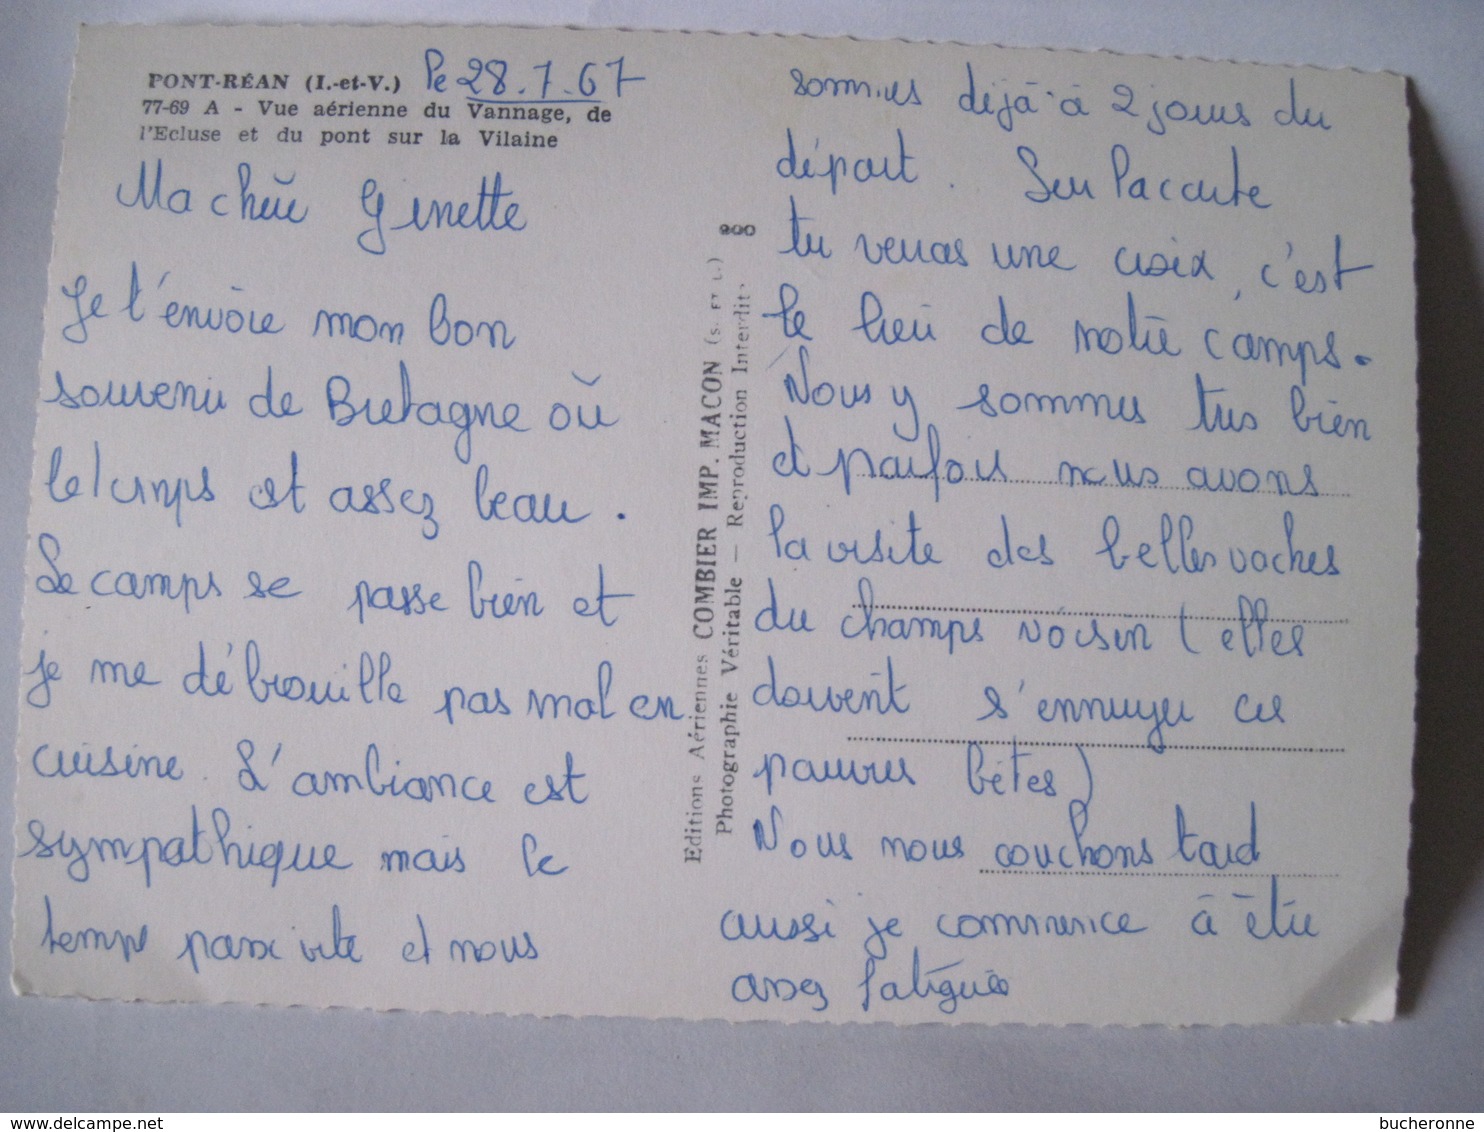 PONT-RÉAN (I.-et-V.) le 28.7.67
77-69 A - Vue aérienne du Vannage, de
l'Ecluse et du pont sur la Vilaine
Ma chère Ginette
Je t'envoie mon bon
souvenir de Bretagne où
le temps est assez beau.
Le camps se passe bien et
je me débrouille pas mal en
cuisine. L'ambiance est
sympathique mais le
temps passe vite et nous
Editions Aériennes COMBIER IMP. MACON (S. ET L.)
Photographie Véritable — Reproduction Interdite
900
sommes déjà à 2 jours du
départ. Sur la carte
tu verras une croix, c'est
le lieu de notre camps.
Nous y sommes très bien
et parfois nous avons
la visite des belles vaches
du champs voisin (elles
doivent s'ennuyer ces
pauvres bêtes)
Nous nous couchons tard
aussi je commence à être
assez fatiguée
bucheronne